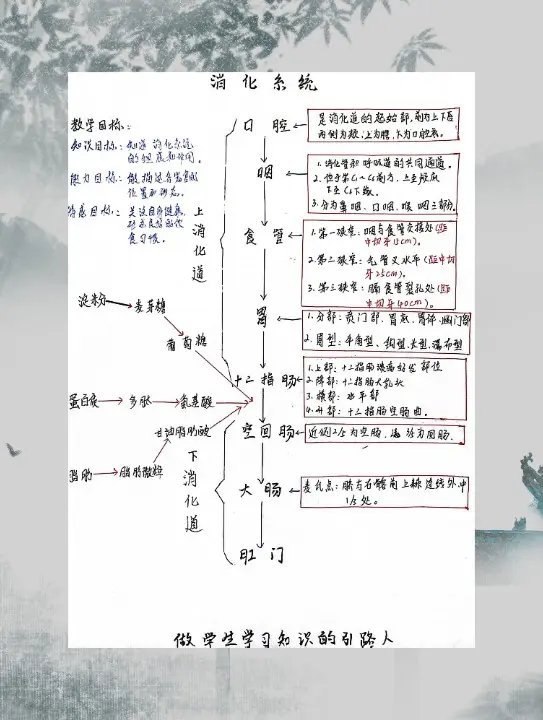 消化系统
教学目标：
知识目标：知道消化系统
的组成和作用。
能力目标：能描述各器官的
位置和形态。
情感目标：关注自身健康，
培养良好的饮
食习惯。
上消化道
口腔
是消化道的起始部，前为上下唇
两侧为颊，上为腭，下为口腔底。
咽
1. 消化管和呼吸道的共同通道。
2. 位于第C₁~C₆前方，上至颅底
下至C₆下缘。
3. 分为鼻咽、口咽、喉咽三部分。
食管
1. 第一狭窄：咽与食管交接处(距
中切牙15cm)。
2. 第二狭窄：气管叉水平(距中切
牙25cm)。
3. 第三狭窄：膈食管裂孔处(距
中切牙40cm)。
胃
1. 分部：贲门部、胃底、胃体、幽门部
2. 胃型：牛角型、钩型、长型、瀑布型
十二指肠
1. 上部：十二指肠溃疡好发部位
2. 降部：十二指肠大乳头
3. 横部：水平部
4. 升部：十二指肠空肠曲。
淀粉
麦芽糖
葡萄糖
蛋白质
多肽
氨基酸
甘油脂肪酸
脂肪
脂肪微粒
下消化道
空回肠
近侧2/5为空肠，远3/5为回肠。
大肠
麦氏点：脐与右髂前上棘连线外中
1/3处。
肛门
做学生学习知识的引路人